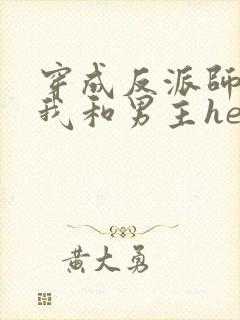 穿成反派師
我和男主he
黄大勇